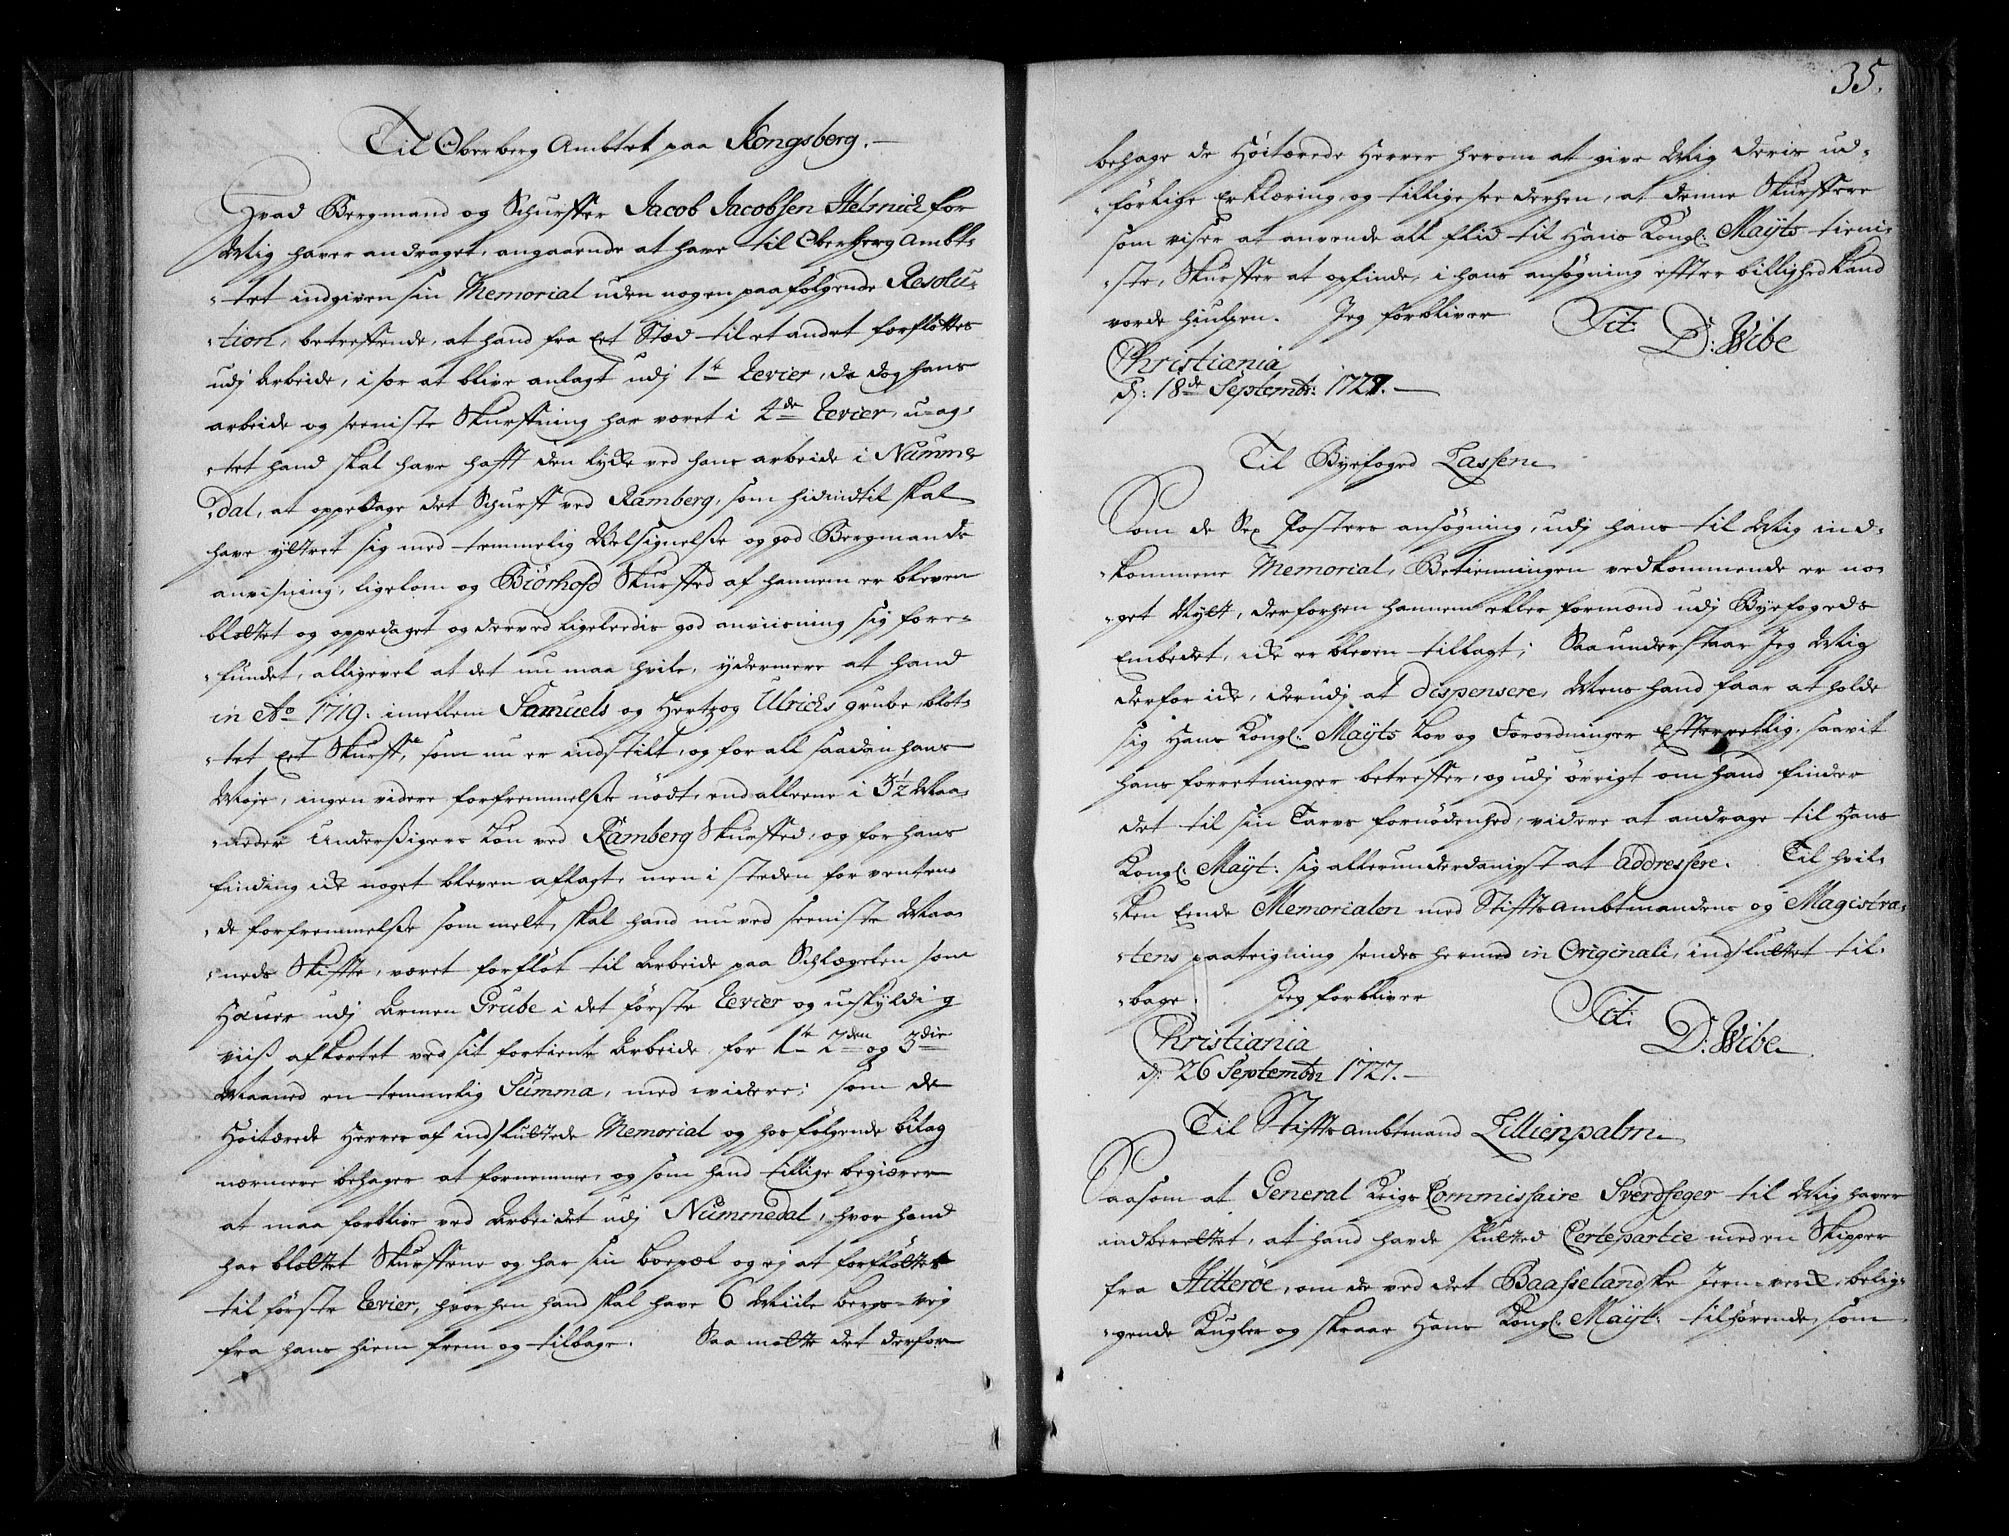 Til Oberberg Ambtet paa Kongsberg.
Hvad Bergmand og Schurffer Jacob Jacobsen Helmich for
Mig haver andraget, angaaende at have til Oberberg Ambt-
-tet indgiven sin Memorial uden nogen paafølgende Resolu-
-tion, betreffende, at hand fra Eet Stæd til et andet forfløttes
udj Arbeide, i sær at blive anlagt udj 1te Revier, da dog hans
arbeide og seeniste Skurffning har været i 4de Revier, u-ag-
-tet hand skal have hafft den lyke ved hans arbeide i Numme
-dal, at oppedage det Schurff ved Ramberg, som hidindtil skal
have yttret sig med temmelig Velsignelse og god Bergmands
anvisning, ligesom og Biørhold Skurffed af hannem er bleven
bløttet og oppedaget og derved ligeledis god anviisning sig fore-
-fundet, alligevel at det nu maa hvile, ydermere at hand
in Ao 1719. imellem Samuels og Hertzog Ulrichs grube bløt-
-tet Eet Skurff, som nu er indstilt, og for all saadan hans
Møje, ingen videre forfremmelse nødt, end alleene i 3½ Maa-
-neder Understigers Løn ved Ramberg Skurffed, og for hans
finding ike noget bleven aflagt, men i steden for venten-
-de forfremmelse som melt, skal hand nu ved seeniste Maa-
-neds Skiffte, været forfløt til Arbeide paa Schlægelen som
Hauer udj Armen Grube i det første Revier og uskyldig
viis afkortet ved sit fortiente Arbeide for 1te 2den og 3die
Maaned en temmelig Summa, med widere; som de
Høitærede Herrer af indsluttede Memorial og hosfølgende bilag
nærmere behager at fornemme, og som hand tillige begiærer
at maa forblive ved Arbeidet udj Nummedal, hvor hand
har bløttet Skurffene og har sin boepæl og ej at forfløttes
til første Revier, hvorhen hand skal have 6 Miile bergs-vej
fra hans hiem frem og tilbage. Saa motte det derfor
35.
behage de Høitærede Herrer herom at give Mig deris ud-
-førlige Erklæring, og tillige see derhen, at denne Skurffere
som viser at anvende all flid til Hans Kongl: Mayts tieni-
-ste, Skurffer at opfinde, i hans ansøgning effter billighed kand
vorde hiulpen. Jeg forbliver Tit:
D: Wibe
Christiania
d: 18de Septembr: 1727.
Til Byefoged Lassen
Som de Sex Posters ansøgning, udj hans til Mig ind-
-kommene Memorial, Betienningen vedkommende er no-
-get Nytt, derforhen hannem eller formænd udj Byefogeds
Embedet, ike er bleven tillagt; Saa understaar Jeg Mig
derfor ike, derudj at dispensere, Mens hand faar at holde
sig Hans Kongl: Mayts Lov og Forordninger Effterrettlig, saavit
hans forretninger betreffer, og udj øvrigt om hand finder
det til sin Tarvs fornødenhed, videre at andrage til Hans
Kongl: Mayt: sig allerunderdanigst at addressere. Til hvil-
-ken Eende Memorialen med Stiftsambtmandens og Magistra-
-tens paateigning sendes hermed in Originali, indsluttet til-
-bage. Jeg forbliver Tit:
D: Wibe
Christiania
d: 26 Septembr 1727.
Til Stiftsambtmand Lillienpalm
Saasom at General Krigs Commissaire Sverdfeger til Mig haver
indberettet, at hand havde sluttet Certepartie med en Skipper
fra Hitterøe, om de ved det Baasselandske Jern-verk belig-
-gende Kugler og skraae Hans Kongl: Mayt: tilhørende, som